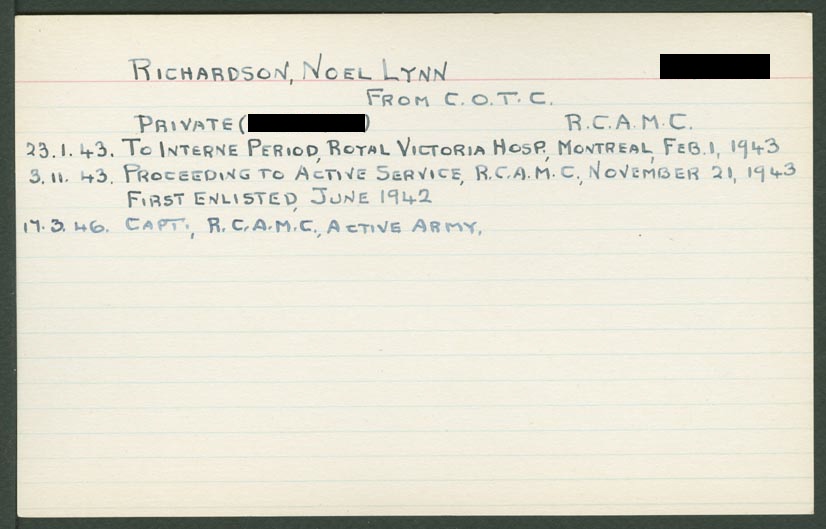 RICHARDSON, NOEL LYNN
FROM C.O.T.C.
PRIVATE ( ) R.C.A.M.C.
23.1.43. TO INTERNE PERIOD, ROYAL VICTORIA HOSP., MONTREAL, FEB. 1, 1943
3.11.43. PROCEEDING TO ACTIVE SERVICE, R.C.A.M.C., NOVEMBER 21, 1943
FIRST ENLISTED, JUNE 1942
17.3.46. CAPT., R.C.A.M.C., ACTIVE ARMY.